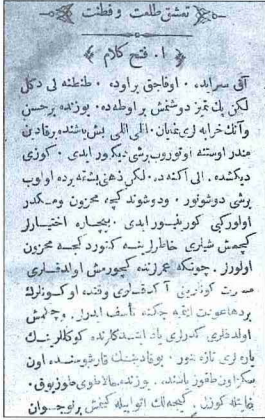 تعشق طلعت و فطنت
۱ . فتح كلام
آق سرايده ، اوفاجق بر اوده ، طنطنه لى دكل
لكن پك تميز دوشنمش بر اوطه ده ، يوزنده بر حسن
وآنك خرابه لرى نمايان ، اللى اللى بش ياشنده بر قادين
مندر اوستنه اوتوروب بر شى ديكيور ايدى . كوزى
ديكشده ، الى اكنه ده ، لكن ذهنى بشقه يرده اولوب
بر شى دوشونور ، ودوشوندكجه محزون ومكدر
اولور كبى كورينيور ايدى . بيچاره اختيارلر
كچمش شيلرى خاطرلرينه كتوردكجه محزون
اولورلر . چونكه عمرلرنده كچورمش اولدقلرى
مسرت كونلرينى آكدقلرى وقتده او كونلرك
بردها عودت ايتميه جكنه تأسف ايدرلر . وچكمش
اولدقلرى كدرلرى ياد ايتدكلرنده كوكللرينك
ياره لرى تازه لنور . بو قادينك قارشوسنده اون
سكز اون طقوز ياشنده ، يوزنده هنوز توى توز يوق ،
كوزل كيجه لك اثوابيله كينمش بر نوجوان